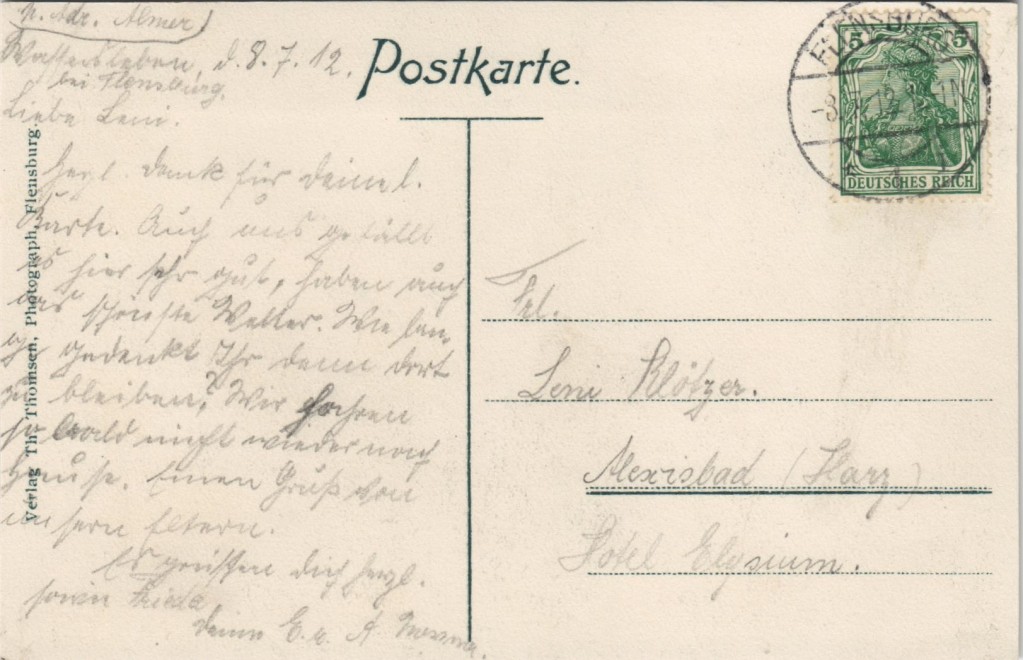 n. Adr. Almer
Wassersleben, d. 8.7.12.
bei Flensburg.
Liebe Leni.
Herzl. Dank für Deine l.
Karte. Auch uns gefällt
es hier sehr gut, haben auch
das schönste Wetter. Wie lan-
ge gedenkt Ihr denn dort
zu bleiben? Wir fahren
so bald nicht wieder nach
Hause. Einen Gruß von
unsern Eltern.
Es grüßen Dich herzl.
sowie Frieda
Deine E. u. A.
Verlag Th. Thomsen, Photograph, Flensburg.
Postkarte.
FLENSBURG
5 5
DEUTSCHES REICH
Frl.
Leni Klötzer.
Alexisbad (Harz)
Hotel Elysium.